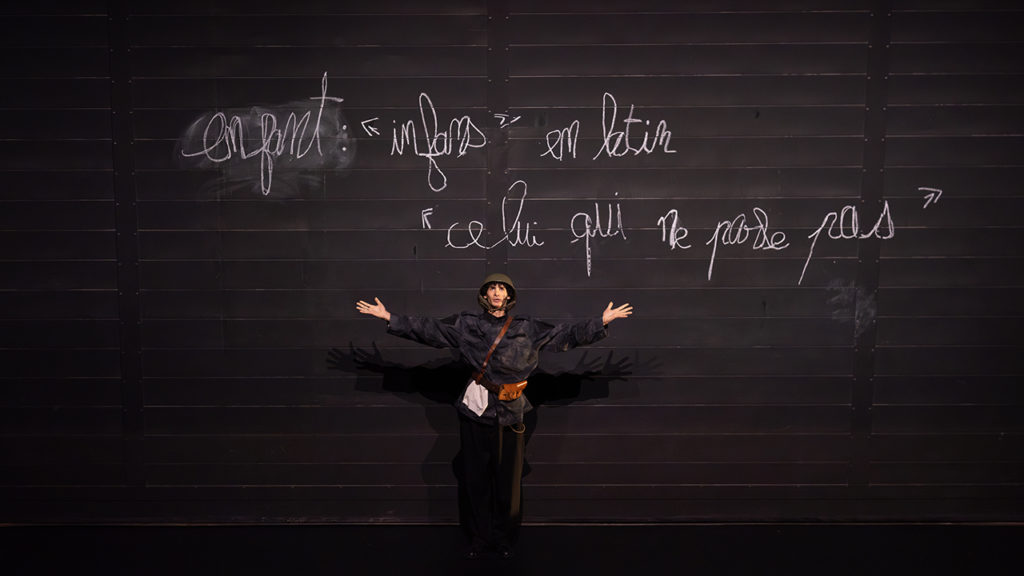 enfant : « infans » en latin
« celui qui ne parle pas »